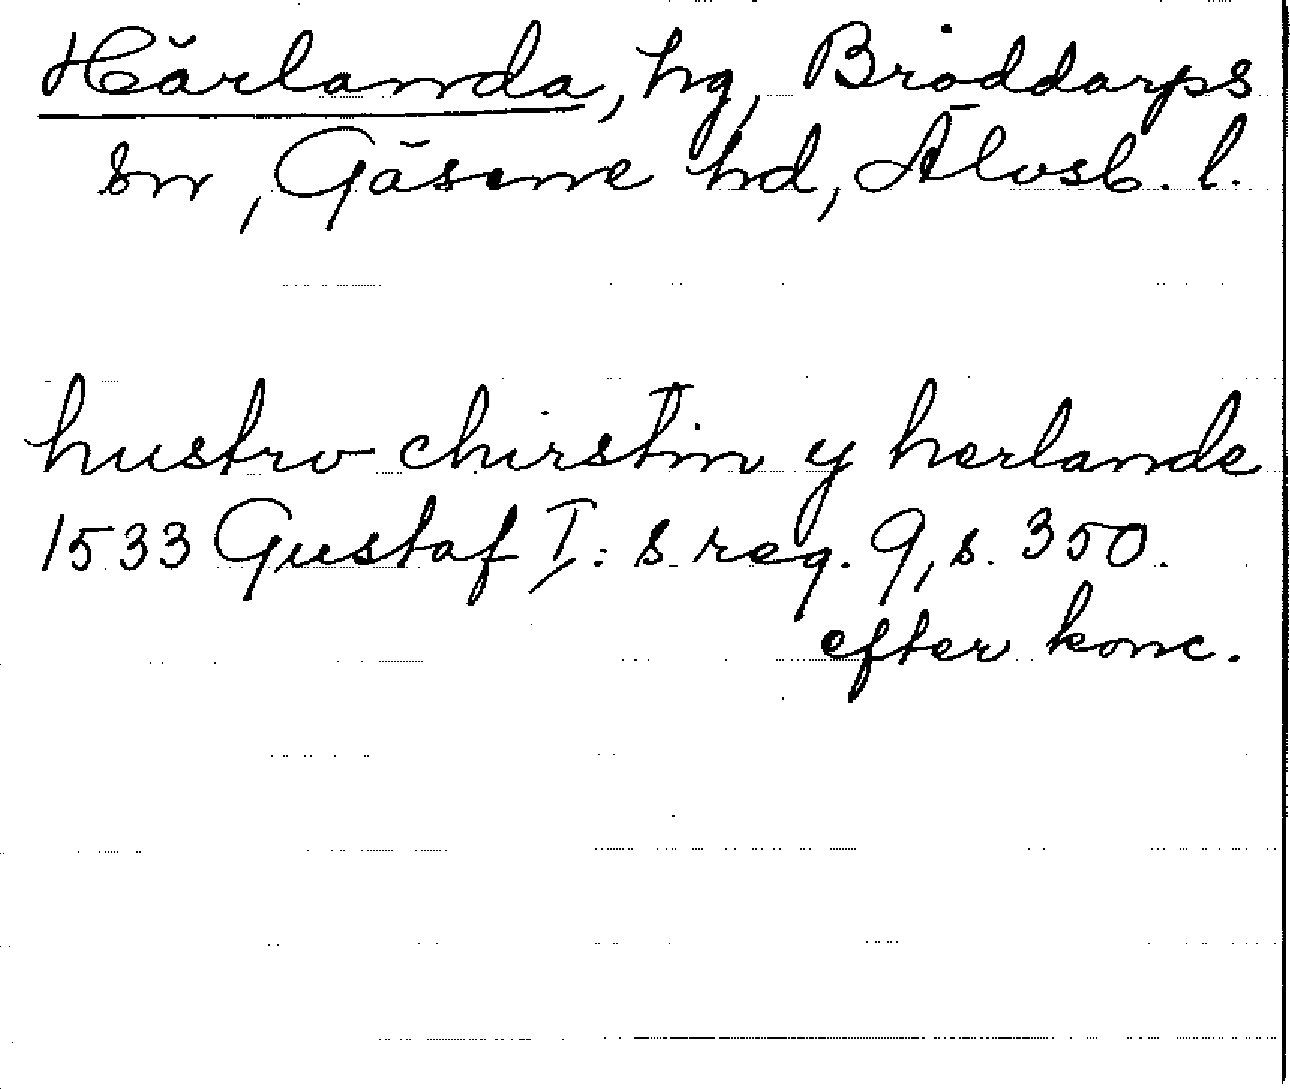 Härlanda, hg, Broddarps
sn, Gäsene hd, Älvsb. l.
hustrv chirstin y herlande
1533 Gustaf I:s reg. 9, s. 350.
efter konc.